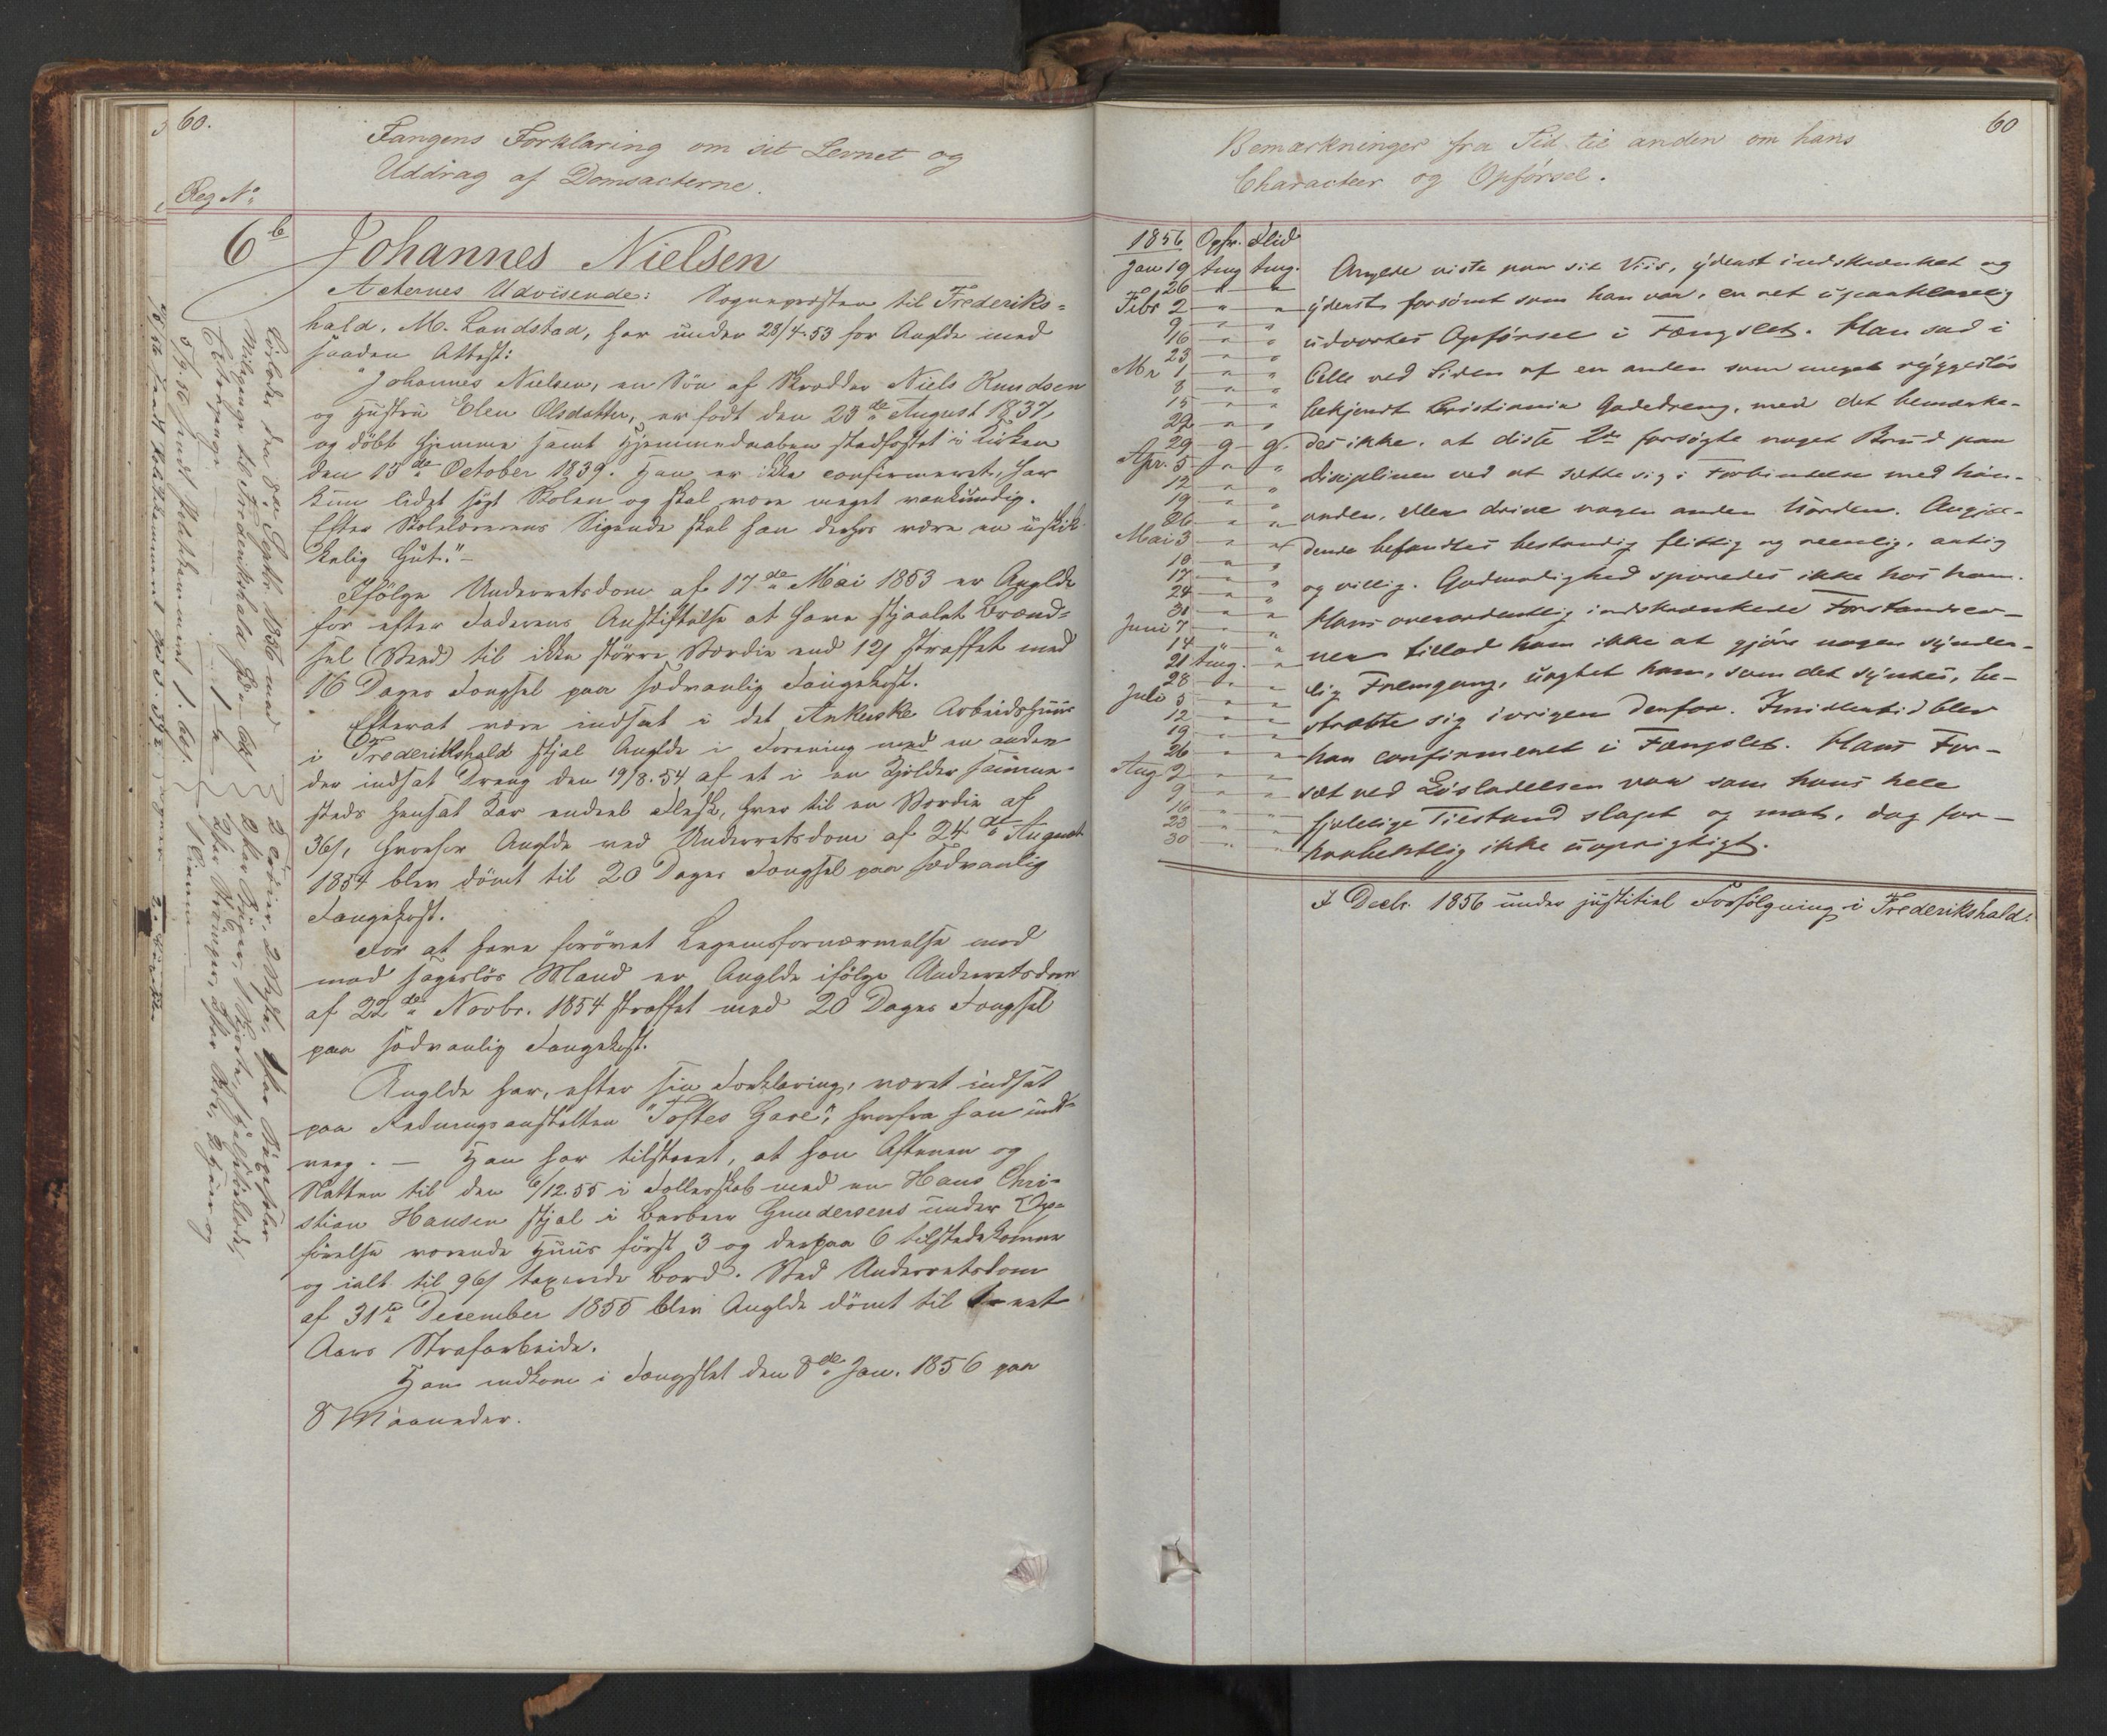 60.
Fangens Forklaring om sit Levnet og
Uddrag af Domsacterne.
Reg No
6b
Johannes Nielsen
Acternes Udvisende: Sognepresten til Frederiks=
hald, M. Landstad, har under 28/4.53 for Anglde med
saadan Attest:
"Johannes Nielsen, en Søn af Skrædder Niels Knudsen
og Hustru Elen Olsdatter, er født den 23de August 1837,
og døbt hjemme samt Hjemmedaaben stadfæstet i Kirken
den 13de October 1839. Han er ikke confirmeret, har
kun lidet søgt Skolen og skal være meget vankundig.
Efter Skolelærerens Sigende skal han derhos være en uskik-
kelig Gut."-
Ifølge Underretsdom af 17de Mai 1853 er Anglde
for efter Faderens Anstiftelse at have stjaalet Brænd=
sel (Veed) til ikke større Værdie end 12 straffet med
16 Dages Fængsel paa sædvanlig Fangekost.
Efterat være indsat i det Ankerske Arbeidshuus
i Frederikshald stjal Anglde i Forening med en anden
der indsat Dreng den 19/8.54 af et i en Kjelder samme-
steds hensat Kar endeel Flesk, hver til en Værdie af
36, hvorfor Anglde ved Underretsdom af 24de August
1854 blev dömt til 20 Dages Fængsel paa sædvanlig
Fangekost.
For at have forøvet Legemsfornærmelse mod
mod sagesløs Mand er Anglde ifølge Underretsdom
af 22de Novbr. 1854 straffet med 20 Dages Fængsel
paa sædvanlig Fangekost.
Anglde har, efter sin Forklaring, været indsat
paa Redningsanstalten "Toftes Gave", hvorfra han und-
veeg. — Han har tilstaaet, at han Aftenen og
Natten til den 6/12.55 i Fællesskab med en Hans Chri-
stian Hansen stjal i Barbeer Gundersens under Op-
førelse værende Huus først 3 og derpaa 6 tilstedekomne
og ialt til 96 taxerede Bord. Ved Underretsdom
af 31te December 1855 blev Anglde dömt til eet
Aars Strafarbeide.
Han indkom i Fængslet den 8de Jan. 1856 paa
8 Maaneder.
Løsladt den 8de Septbr. 1856 med
Milepenge til Frederikshald
5/9.56 sendt Politikammeret
60
Bemærkninger fra Tid til anden om hans
Characteer og Opførsel.
1856 Opfr. Flid
Jan 19 tmg tmg.
26 " "
Febr 2 " "
9 " "
16 " "
23 " "
Mr 1 " "
8 " "
15 " "
22 " "
29 g g.
Apr. 5 " "
12 " "
19 " "
26 " "
Mai 3 " "
10 " "
17 " "
24 " "
31 " "
Juni 7 " "
14 " "
21 tmg. "
28 " "
Juli 5 " "
12 " "
19 " "
26 " "
Aug 2 " "
9 " "
16 " "
23 " "
30 " "
Anglde viste paa sit Viis, yderst indskrænket og
yderst forsømt som han var, en ret upaaklagelig
udvortes Opførsel i Fængslet. Han sad i
Celle ved Siden af en anden som meget ryggesløs
bekjendt Christiania Gadedreng, med det bemærke-
des ikke, at diste forsøgte noget Brud paa
Disciplinen ved at sætte sig i Forbindelse med hin-
anden, eller drive nogen anden Uorden. Angjæl-
dende befandtes bestandig flittig og reenlig, artig
og villig. Godmodighed sporedes ikke hos ham.
Hans overordentlig indskrænkede Forstandsev-
ner tillod ham ikke at gjøre nogen synder-
lig Fremgang, uagtet han, som det syntes, be-
stræbte sig ivrigen derfor. Imidlertid blev
han confirmeret i Fængslet. Hans For-
sæt ved Løsladelsen var som hans hele
sjelelige Tilstand slapt og mat, dog for-
haabentlig ikke uoprigtigt.
I Decbr. 1856 under justitiel Forfølgning i Frederikshald.